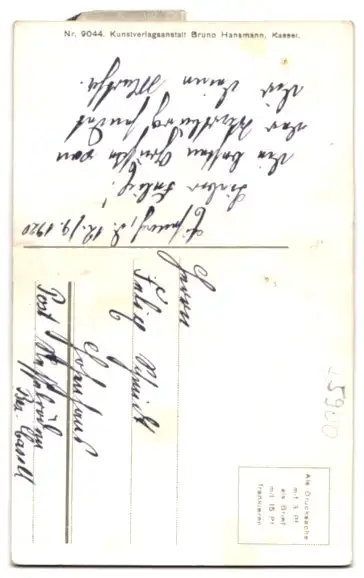 Nr. 9044. Kunstverlagsanstalt Bruno Hansmann, Kassel.
d. 12./9. 1920
Lieber Felix!
Die besten Grüße von
der Wartburg sendet
Dir Deine Martha.
Herrn
Felix
Post
Bez. Cassel
25920
Als Drucksache
mit 3 Pf
als Brief
mit 15 Pf
frankieren